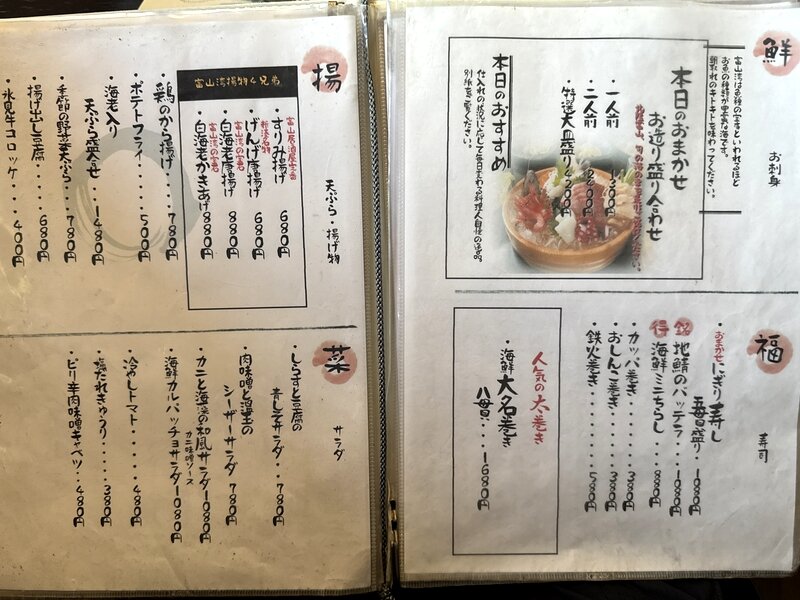 鮮
お刺身
富山湾は魚種の宝庫といわれるほど
お魚の種類が豊富な海です。
朝取れのキトキトを味わってください。
本日のおまかせ
お造り盛り合わせ
・一人前
・二人前・・・2200円
・特選大皿盛り4200円
本日のおすすめ
仕入れの状況に応じて毎日変わる料理人自慢の逸品。
別紙をご覧ください。
福
寿司
・おまかせにぎり寿し
五貫盛り・・1080円
地鯖のバッテラ・・・・1080円
得 海鮮ミニちらし・・・・880円
・カッパ巻き・・・・380円
・おしんこ巻き・・・・380円
・鉄火巻き・・・・・580円
人気の太巻き
・海鮮大名巻き
八貫・・・1680円
揚
天ぷら・揚げ物
富山湾揚物4兄弟
・すり身揚げ 680円
・げんげ唐揚げ 680円
富山湾の宝石
・白海老唐揚げ 880円
富山湾の宝石
・白海老かきあげ 880円
・鶏のから揚げ・・・780円
・ポテトフライ・・・・・500円
・海老入り
天ぷら盛合せ・・・1480円
・季節の野菜天ぷら・・780円
・揚げ出し豆腐・・・・680円
・氷見牛コロッケ・・・・400円
菜
サラダ
・しらすと豆腐の
青じそサラダ・・780円
・肉味噌と温玉の
シーザーサラダ 780円
・カニと海藻の和風サラダ1080円
カニ味噌ソース
・海鮮カルパッチョサラダ1080円
・冷しトマト・・・・480円
・塩だれきゅうり・・・・380円
・ピリ辛肉味噌キャベツ・・480円